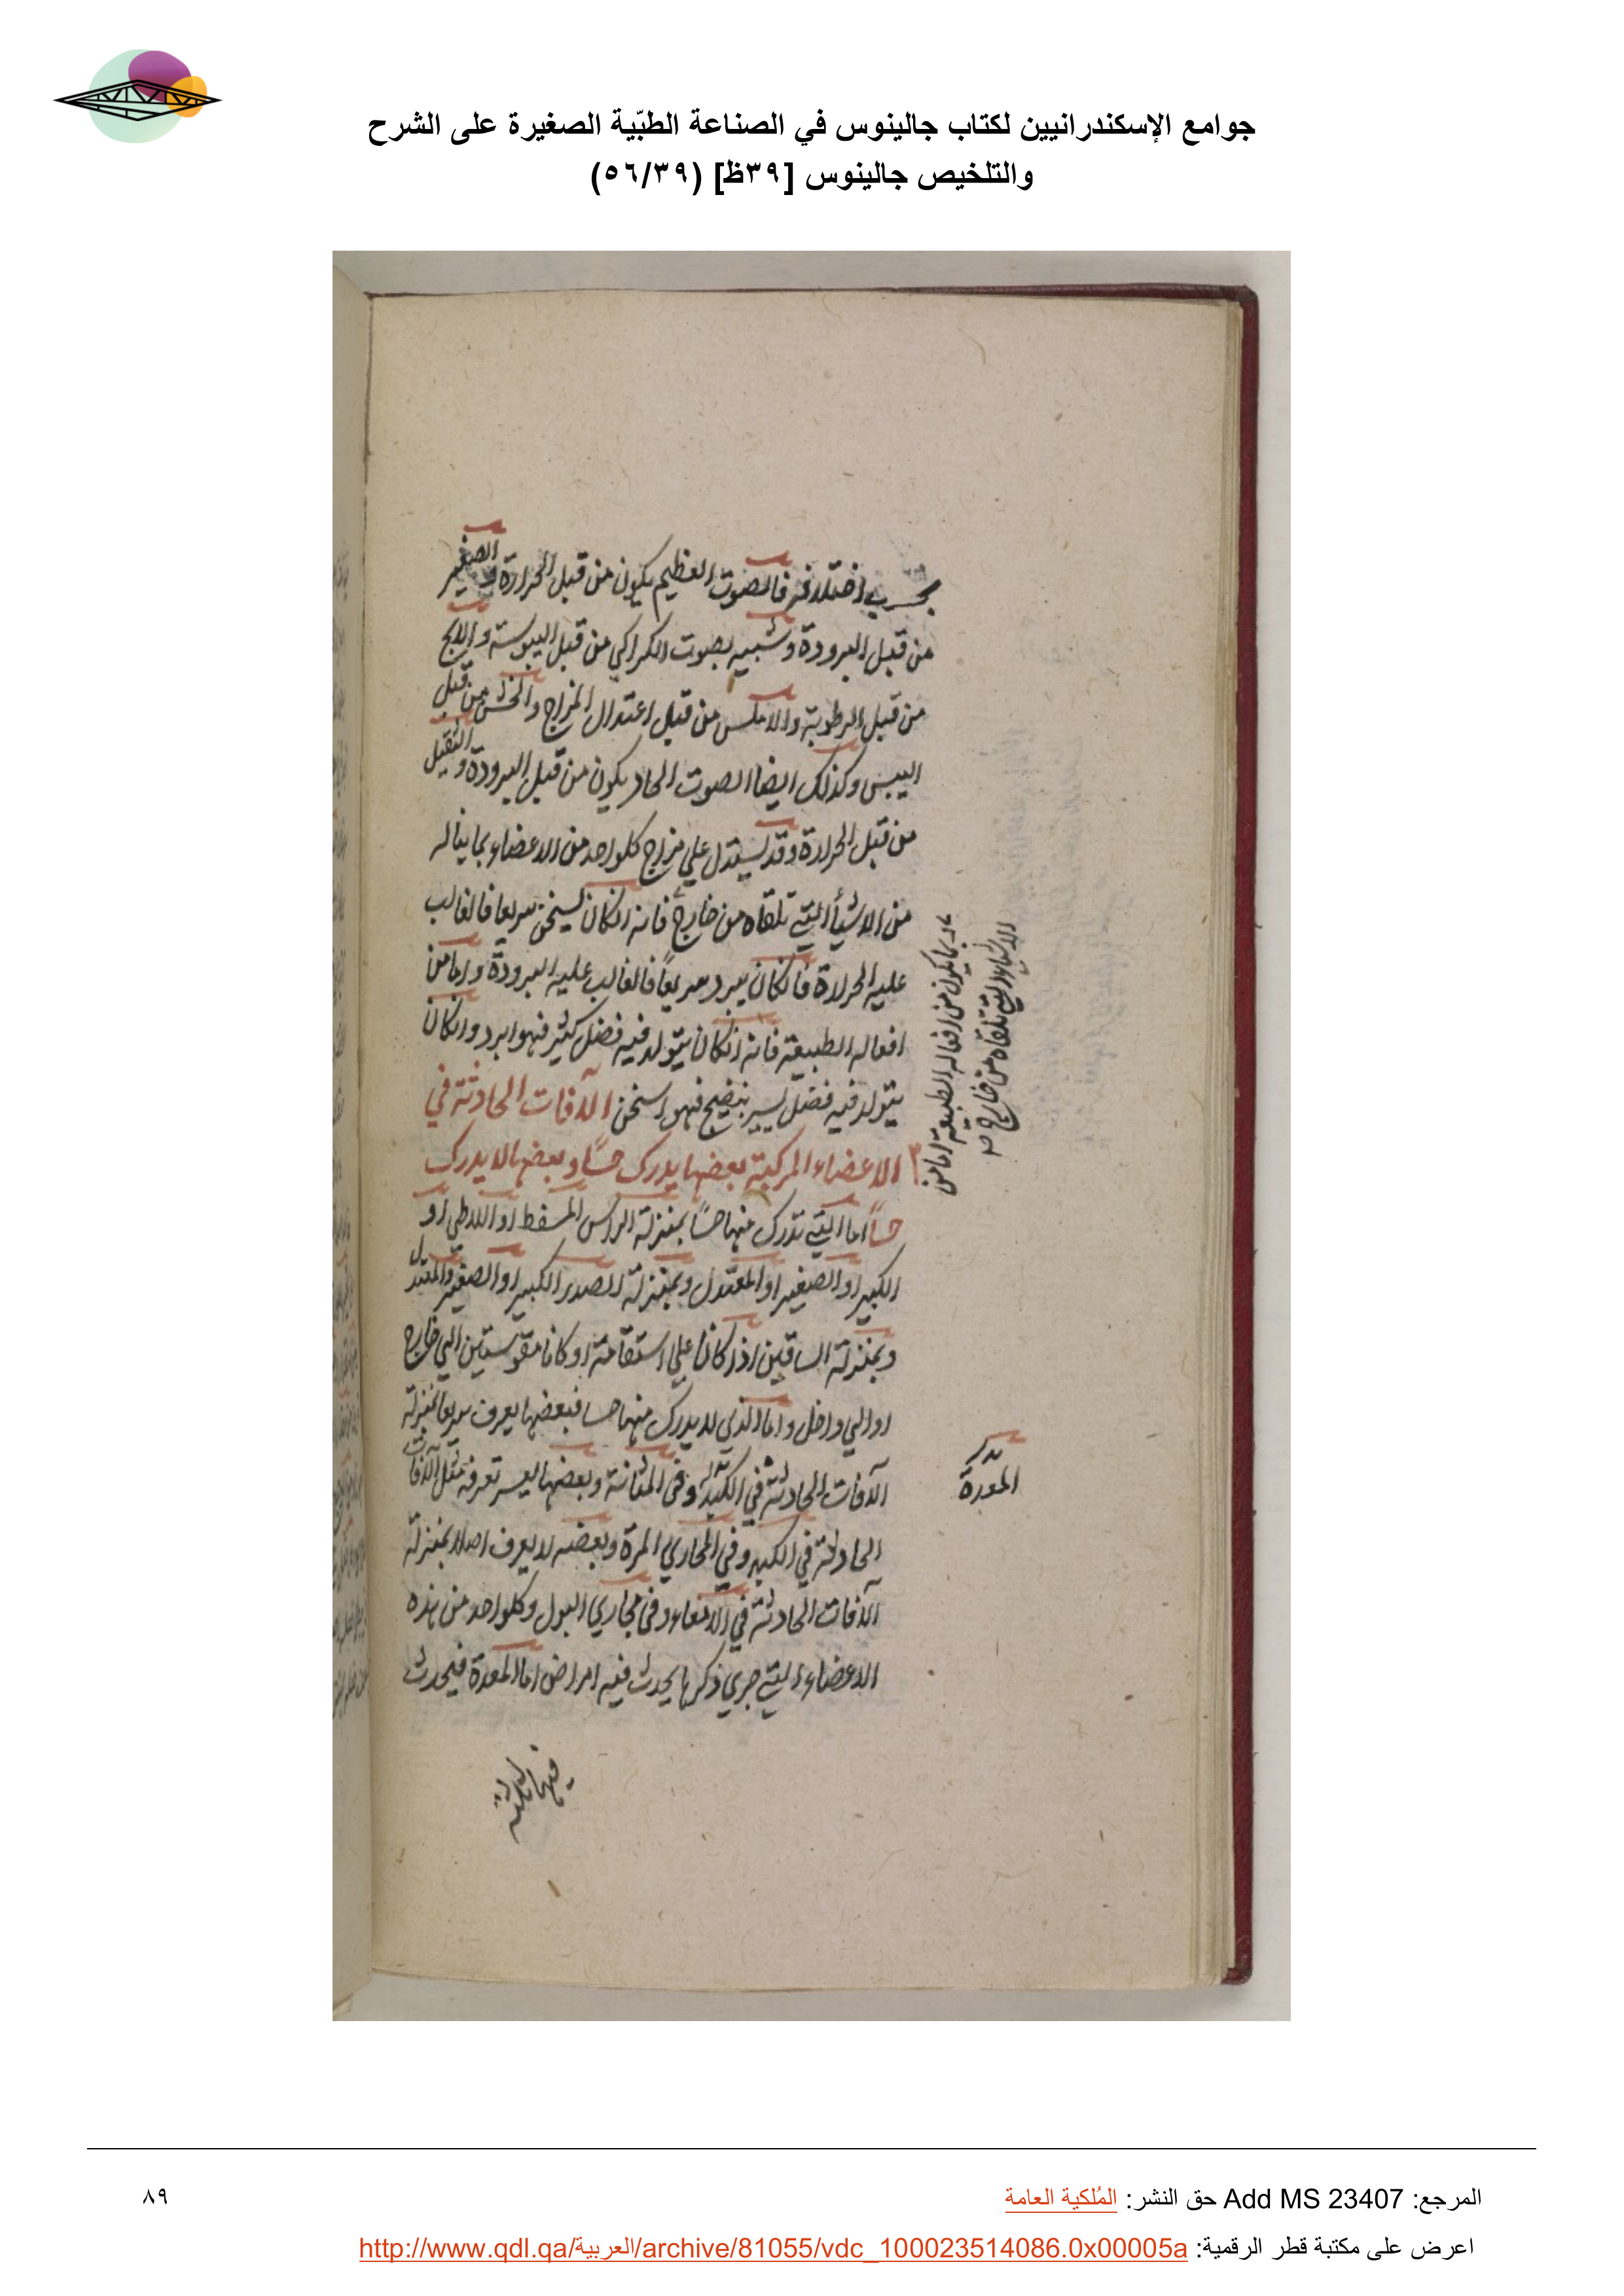 جوامع الإسكندرانيين لكتاب جالينوس في الصناعة الطبّية الصغيرة على الشرح
والتلخيص جالينوس [٣٩ظ] (٥٦/٣٩)
بحسب اختلافه فالصوت العظيم يكون من قبل الحرارة والصغير
من قبل البرودة وشبيه بصوت الكراكي من قبل اليبوسة والابح
من قبل الرطوبة والاملس من قبل اعتدال المزاج والخشن من قبل
اليبس وكذلك ايضا الصوت الحاد يكون من قبل البرودة والثقيل
من قبل الحرارة وقد يستدل علي مزاج كلواحد من الاعضاء بما يناله
من الاشيأ التي تلقاه من خارج فانه انكان يسخن سريعا فالغالب
عليه الحرارة فانكان يبرد سريعًا فالغالب عليه البرودة واما من
افعاله الطبيعة فانه انكان يتولد فيه فضل كثير فهو ابرد وانكان
يتولد فيه فضل يسير بنضيج فهو اسخن الآفات الحادثة في
الاعضاء المركبة بعضها يدرك حسًا وبعضها لا يدرك
حسًا اما التي تدرك منها حسًا بمنزلة الراس المسفط او اللاطي او
الكبير او الصغير او المعتدل وبمنزلة الصدر الكبير او الصغير والمعتدل
وبمنزلة الساقين اذا كانا علي استقامة او كانا مقوستين الي خارج
او الي داخل واما الذي لا يدرك منها حسا فبعضها يعرف سريعا بمنزلة
الآفات الحادثة في الكبد وفي المثانة وبعضها يعسر تعرفه مثل الآفات
الحادثة في الكبد وفي المجاري المرة وبعضه لا يعرف اصلا بمنزلة
الآفات الحادثة في الامعاء وفي مجاري البول وكلواحد من هذه
الاعضاء التي جري ذكرها يحدث فيه امراض اما المعدة فيحدث
فيها ثلثة
بما يكون من افعاله الطبيعة اما من
الاشياء التي تلقاه من خارج
بدل
المعدة
المرجع: Add MS 23407 حق النشر: المُلكية العامة
٨٩
اعرض على مكتبة قطر الرقمية: http://www.qdl.qa/العربية/archive/81055/vdc_100023514086.0x00005a